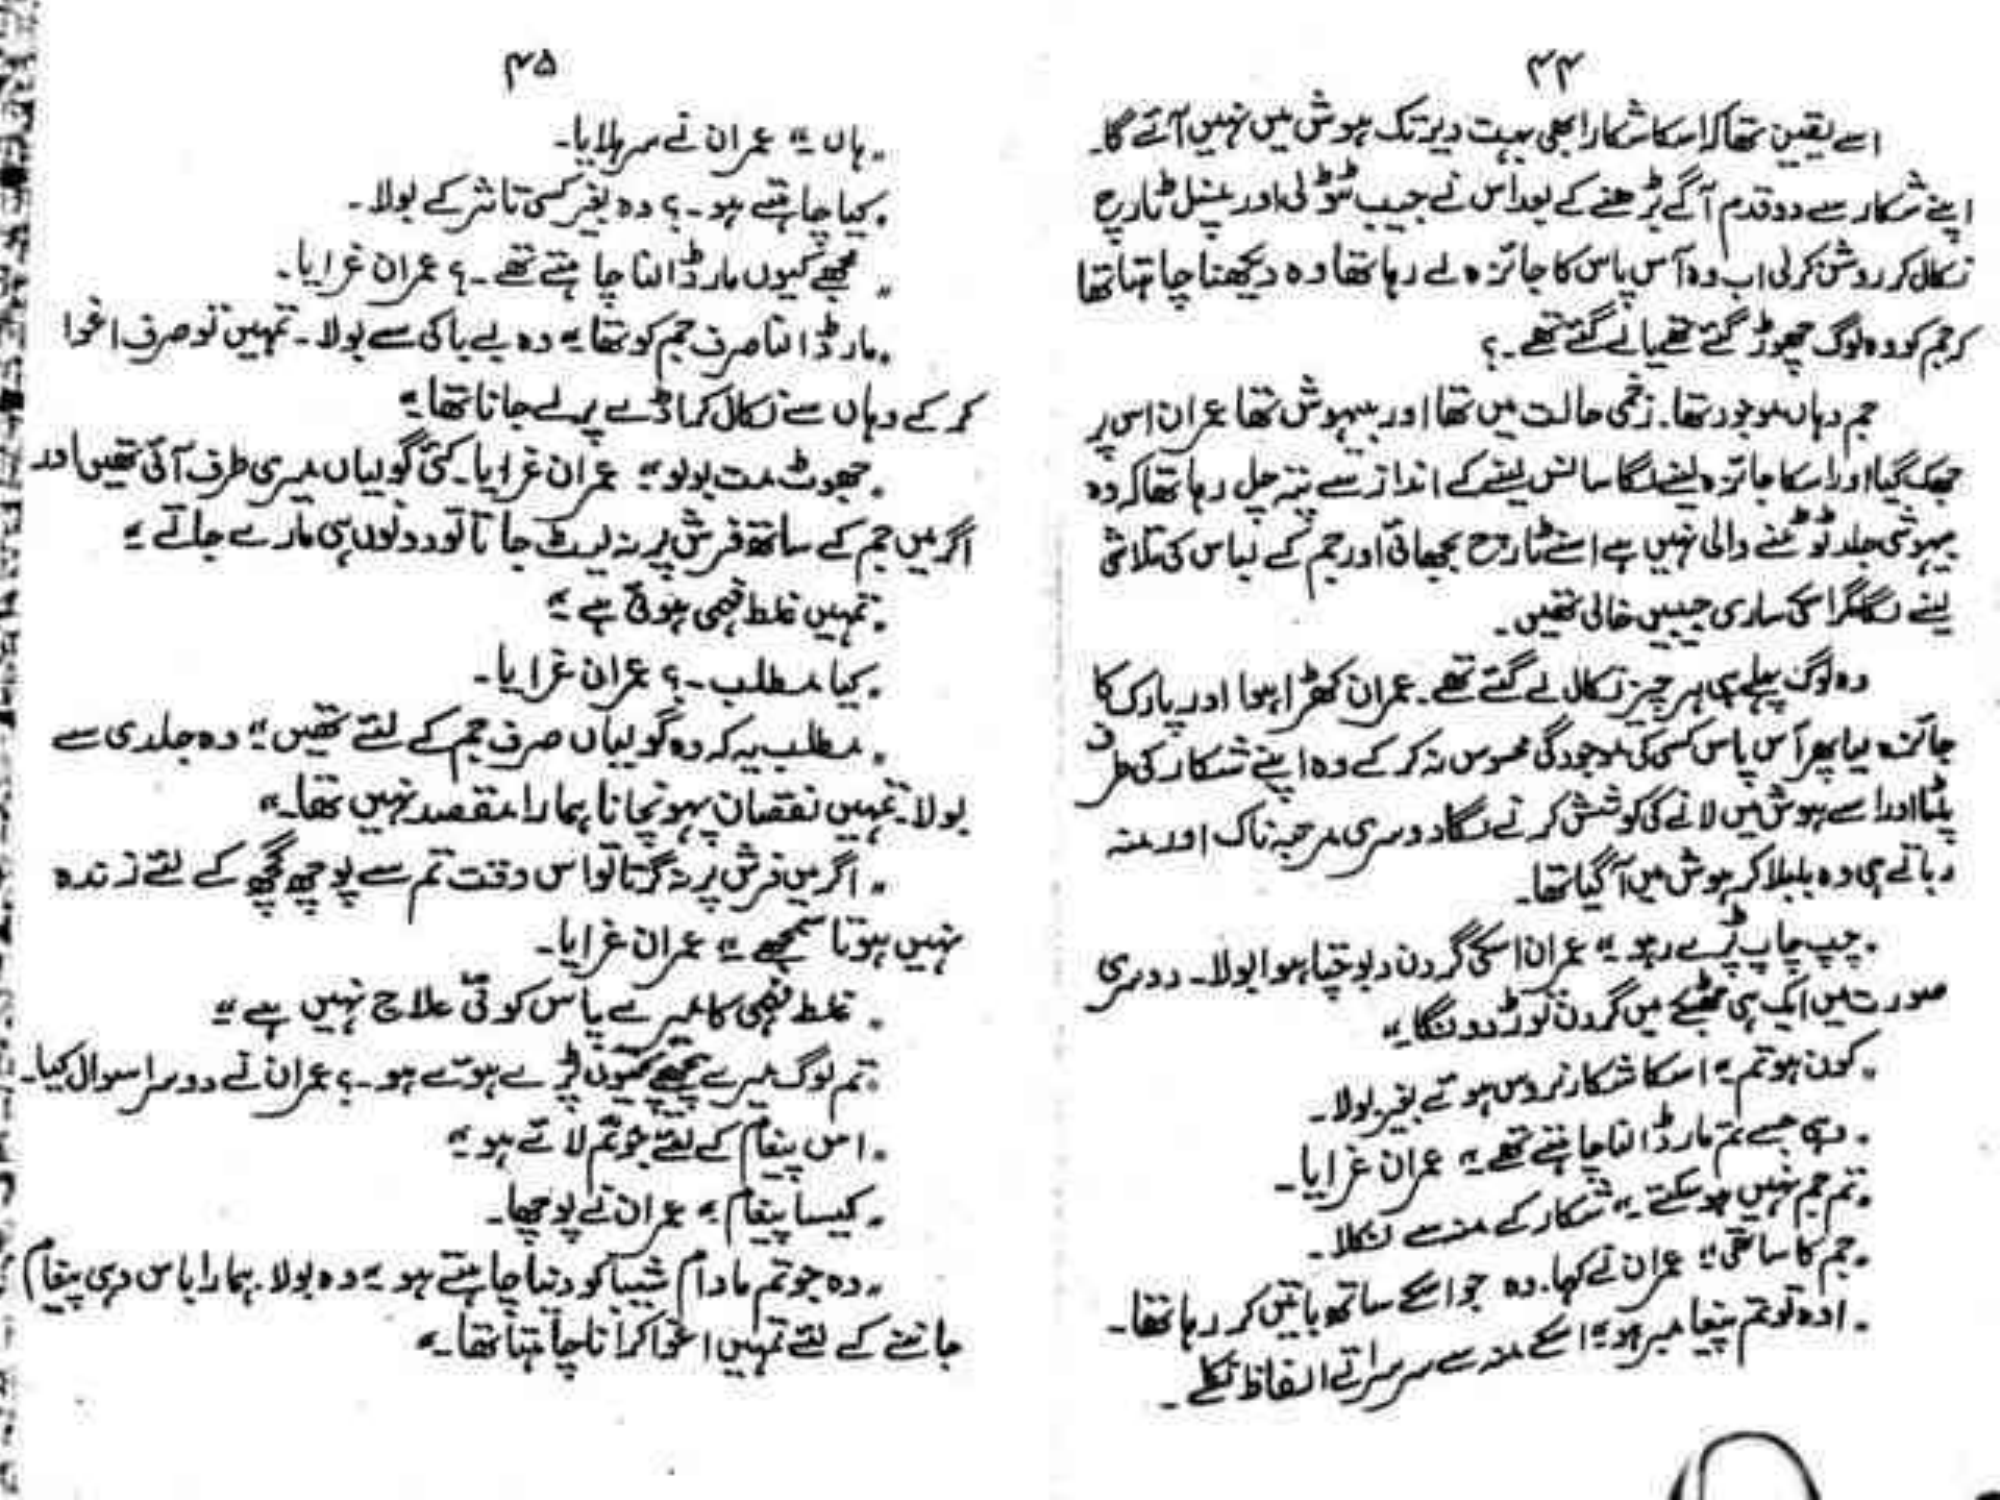 ۴۴
اسے یقین تھا کہ اسکا شکار ابھی بہت دیر تک ہوش میں نہیں آئے گا۔
اپنے شکار سے دو قدم آگے بڑھنے کے بعد اُس نے جیب ٹٹولی اور پنسل ٹارچ
نکال کر روشن کر لی اب وہ آس پاس کا جائزہ لے رہا تھا وہ دیکھنا چاہتا تھا
کہ جم کو وہ لوگ چھوڑ گئے تھے یا لے گئے تھے۔؟
جم وہاں موجود تھا۔ زخمی حالت میں تھا اور بیہوش تھا عمران اس پر
جھک گیا اور اسکا جائزہ لینے لگا سانس لینے کے انداز سے پتہ چل رہا تھا کہ وہ
بیہوشی جلد ٹوٹنے والی نہیں ہے اسنے ٹارچ بجھائی اور جم کے لباس کی تلاشی
لینے لگا مگر اسکی ساری جیبیں خالی تھیں۔
وہ لوگ پہلے ہی ہر چیز نکال لے گئے تھے۔ عمران کھڑا ہوا اور پارک کا
جائزہ لیا پھر آس پاس کسی کی موجودگی محسوس نہ کر کے وہ اپنے شکار کی طرف
پلٹا اور اسے ہوش میں لانے کی کوشش کرنے لگا دوسری مرتبہ ناک اور منہ
دباتے ہی وہ بلبلا کر ہوش میں آ گیا تھا۔
"چپ چاپ پڑے رہو۔" عمران اسکی گردن دبوچتا ہوا بولا۔ دوسری
صورت میں ایک ہی جھٹکے میں گردن توڑ دونگا۔"
"کون ہو تم۔" اسکا شکار نروس ہوئے بغیر بولا۔
"وہی جسے تم مار ڈالنا چاہتے تھے۔" عمران غرایا۔
"تم جم نہیں ہو سکتے۔" شکار کے منہ سے نکلا۔
"جم کا ساتھی۔" عمران نے کہا۔ وہ جو اسکے ساتھ باتیں کر رہا تھا۔
"اوہ تو تم پیغامبر ہو۔" اسکے منہ سے سرسراتے الفاظ نکلے۔
۴۵
"ہاں۔" عمران نے سر ہلایا۔
"کیا چاہتے ہو۔؟ وہ بغیر کسی تاثر کے بولا۔
"مجھے کیوں مار ڈالنا چاہتے تھے۔؟ عمران غرایا۔
"مار ڈالنا صرف جم کو تھا۔" وہ بے باکی سے بولا۔ تمہیں تو صرف اغوا
کر کے وہاں سے نکال کر اڈے پر لے جانا تھا۔"
"جھوٹ مت بولو۔" عمران غرایا۔ کئی گولیاں میری طرف آئی تھیں اور
اگر میں جم کے ساتھ فرش پر نہ لیٹ جاتا تو دونوں ہی مارے جاتے۔"
"تمہیں غلط فہمی ہوئی ہے۔"
"کیا مطلب۔؟ عمران غرایا۔
"مطلب یہ کہ وہ گولیاں صرف جم کے لئے تھیں۔" وہ جلدی سے
بولا۔ تمہیں نقصان پہونچانا ہمارا مقصد نہیں تھا۔"
"اگر میں فرش پر نہ گرتا تو اس وقت تم سے پوچھ گچھ کے لئے زندہ
نہیں ہوتا سمجھے۔" عمران غرایا۔
"غلط فہمی کا میرے پاس کوئی علاج نہیں ہے۔"
"تم لوگ میرے پیچھے کیوں پڑے ہوئے ہو۔؟ عمران نے دوسرا سوال کیا۔
"اس پیغام کے لئے جو تم لائے ہو۔"
"کیسا پیغام۔" عمران نے پوچھا۔
"وہ جو تم مادام شیبا کو دینا چاہتے ہو۔" وہ بولا۔ ہمارا باس وہی پیغام
جاننے کے لئے تمہیں اغوا کرانا چاہتا تھا۔"